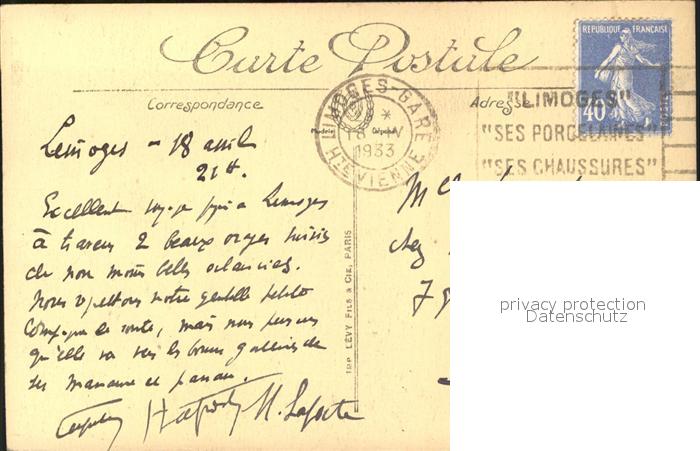 Carte Postale
Correspondance
Adresse
REPUBLIQUE FRANÇAISE
40
POSTES
LIMOGES-GARE
1933
HTE VIENNE
Modèle Déposé
"LIMOGES"
"SES PORCELAINES"
"SES CHAUSSURES"
Limoges - 18 avril
21 H.
Excellent voyage jusqu'à Limoges
à travers 2 beaux orages suivis
de non moins belles
Nous notre gentille petite
Compagne de route, mais nous
qu'elle va vers les bonnes de
Ses Maman et
M. Laforte
IMP. LÉVY FILS & CIE, PARIS
Mlle
chez
7
privacy protection
Datenschutz